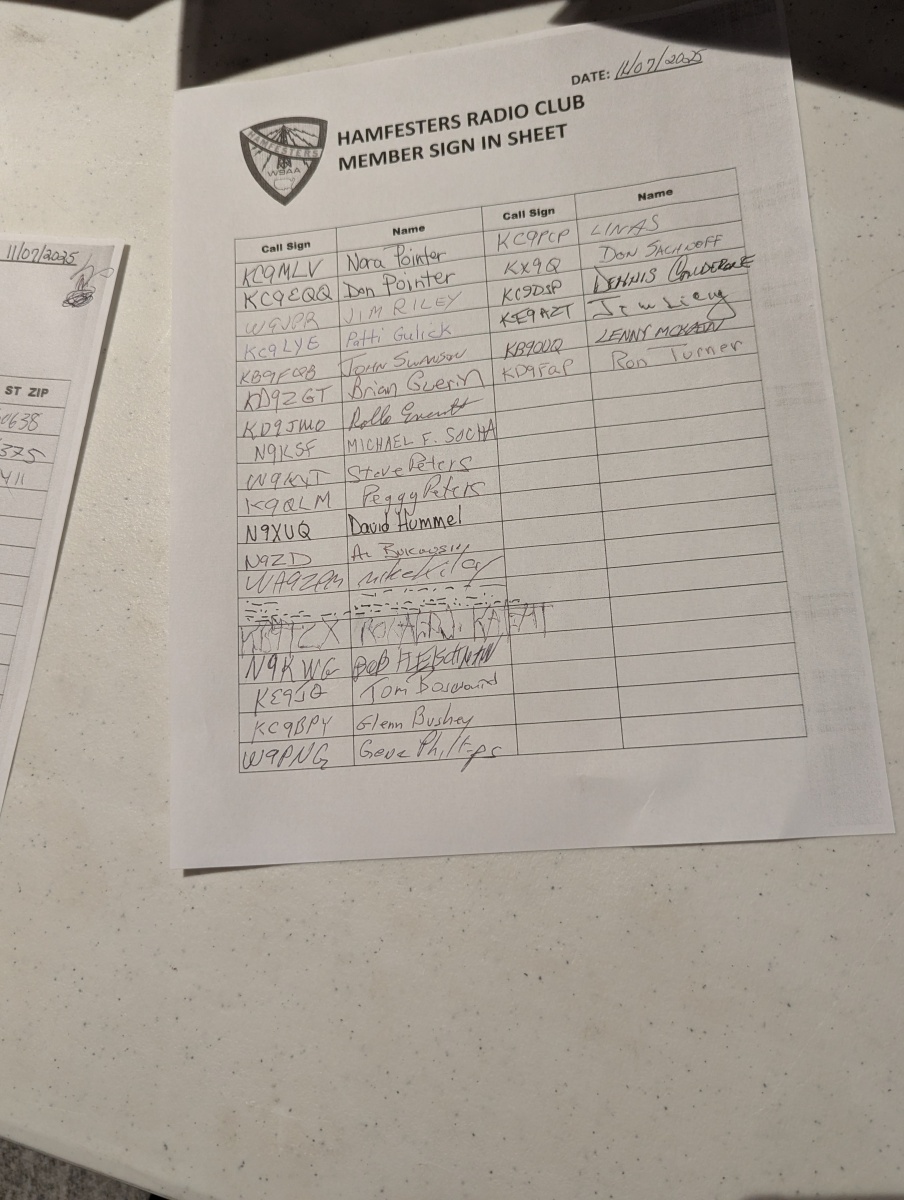 DATE: 11/07/2025
HAMFESTERS RADIO CLUB
MEMBER SIGN IN SHEET
HAMFESTERS
W9AA
Call Sign Name Call Sign Name
KC9MLV Nora Pointer KC9PCP LINAS
KC9EQQ Don Pointer KX9Q DON SACHNOFF
W9JPR JIM RILEY KC9DSP DENNIS
KC9LYE Patti Gulick KE9AZT
KB9FQB JOHN SWANSON KB9OUQ LENNY
KD9ZGT Brian Guerin KD9FAP Ron Turner
KD9JMO Rollo
N9KSF MICHAEL F. SOCHA
Steve Peters
K9QLM Peggy Peters
N9XUQ David Hummel
N9ZD
N9KWG BOB
KE9JQ Tom
KC9BPY Glenn Bushey
W9PNG Gene Phillips
11/07/2025
ST ZIP
0638
375
411